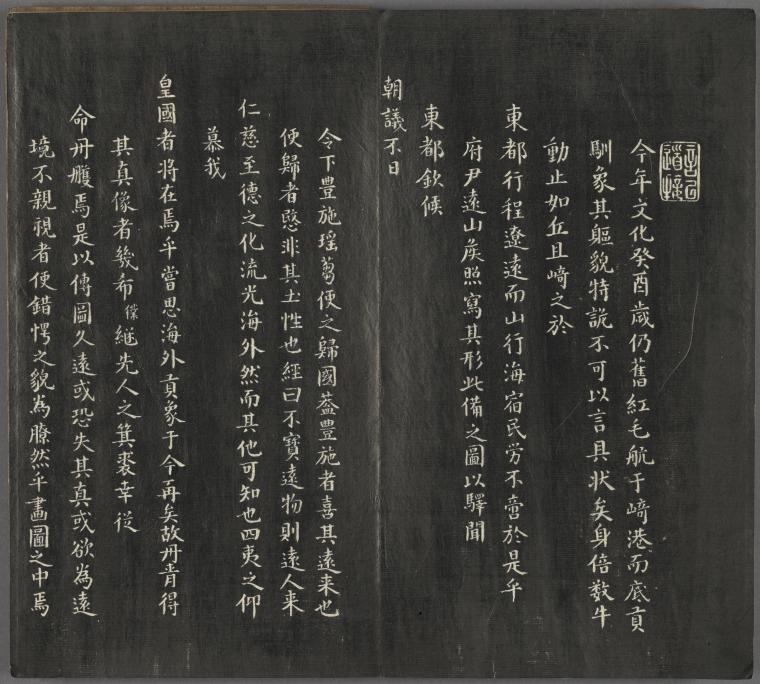 今年文化癸酉歳仍舊紅毛航于﨑港而底貢
馴象其軀貌特詭不可以言具状矣身倍数牛
動止如丘且﨑之於
東都行程遼遠而山行海宿民労不啻於是乎
府尹遠山矦照寫其形此備之圖以驛聞
東都欽候
朝議不日
令下豊施瑶蒭便之歸國葢豊施者喜其遠来也
使歸者愍非其土性也經曰不寳遠物則遠人来
仁慈至德之化流光海外然而其他可知也四夷之仰
慕我
皇國者将在焉乎嘗思海外貢象于今再矣故丹青得
其真像者幾布僕継先人之箕裘幸従
命丹雘焉是以傳圖久遠或恐失其真或欲為遠
境不親視者便錯愕之貌為瞭然乎畫圖之中焉